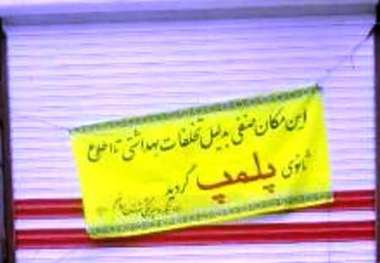 این مکان صنفی بدلیل تخلفات بهداشتی تا اطلاع
ثانوی پلمپ گردید